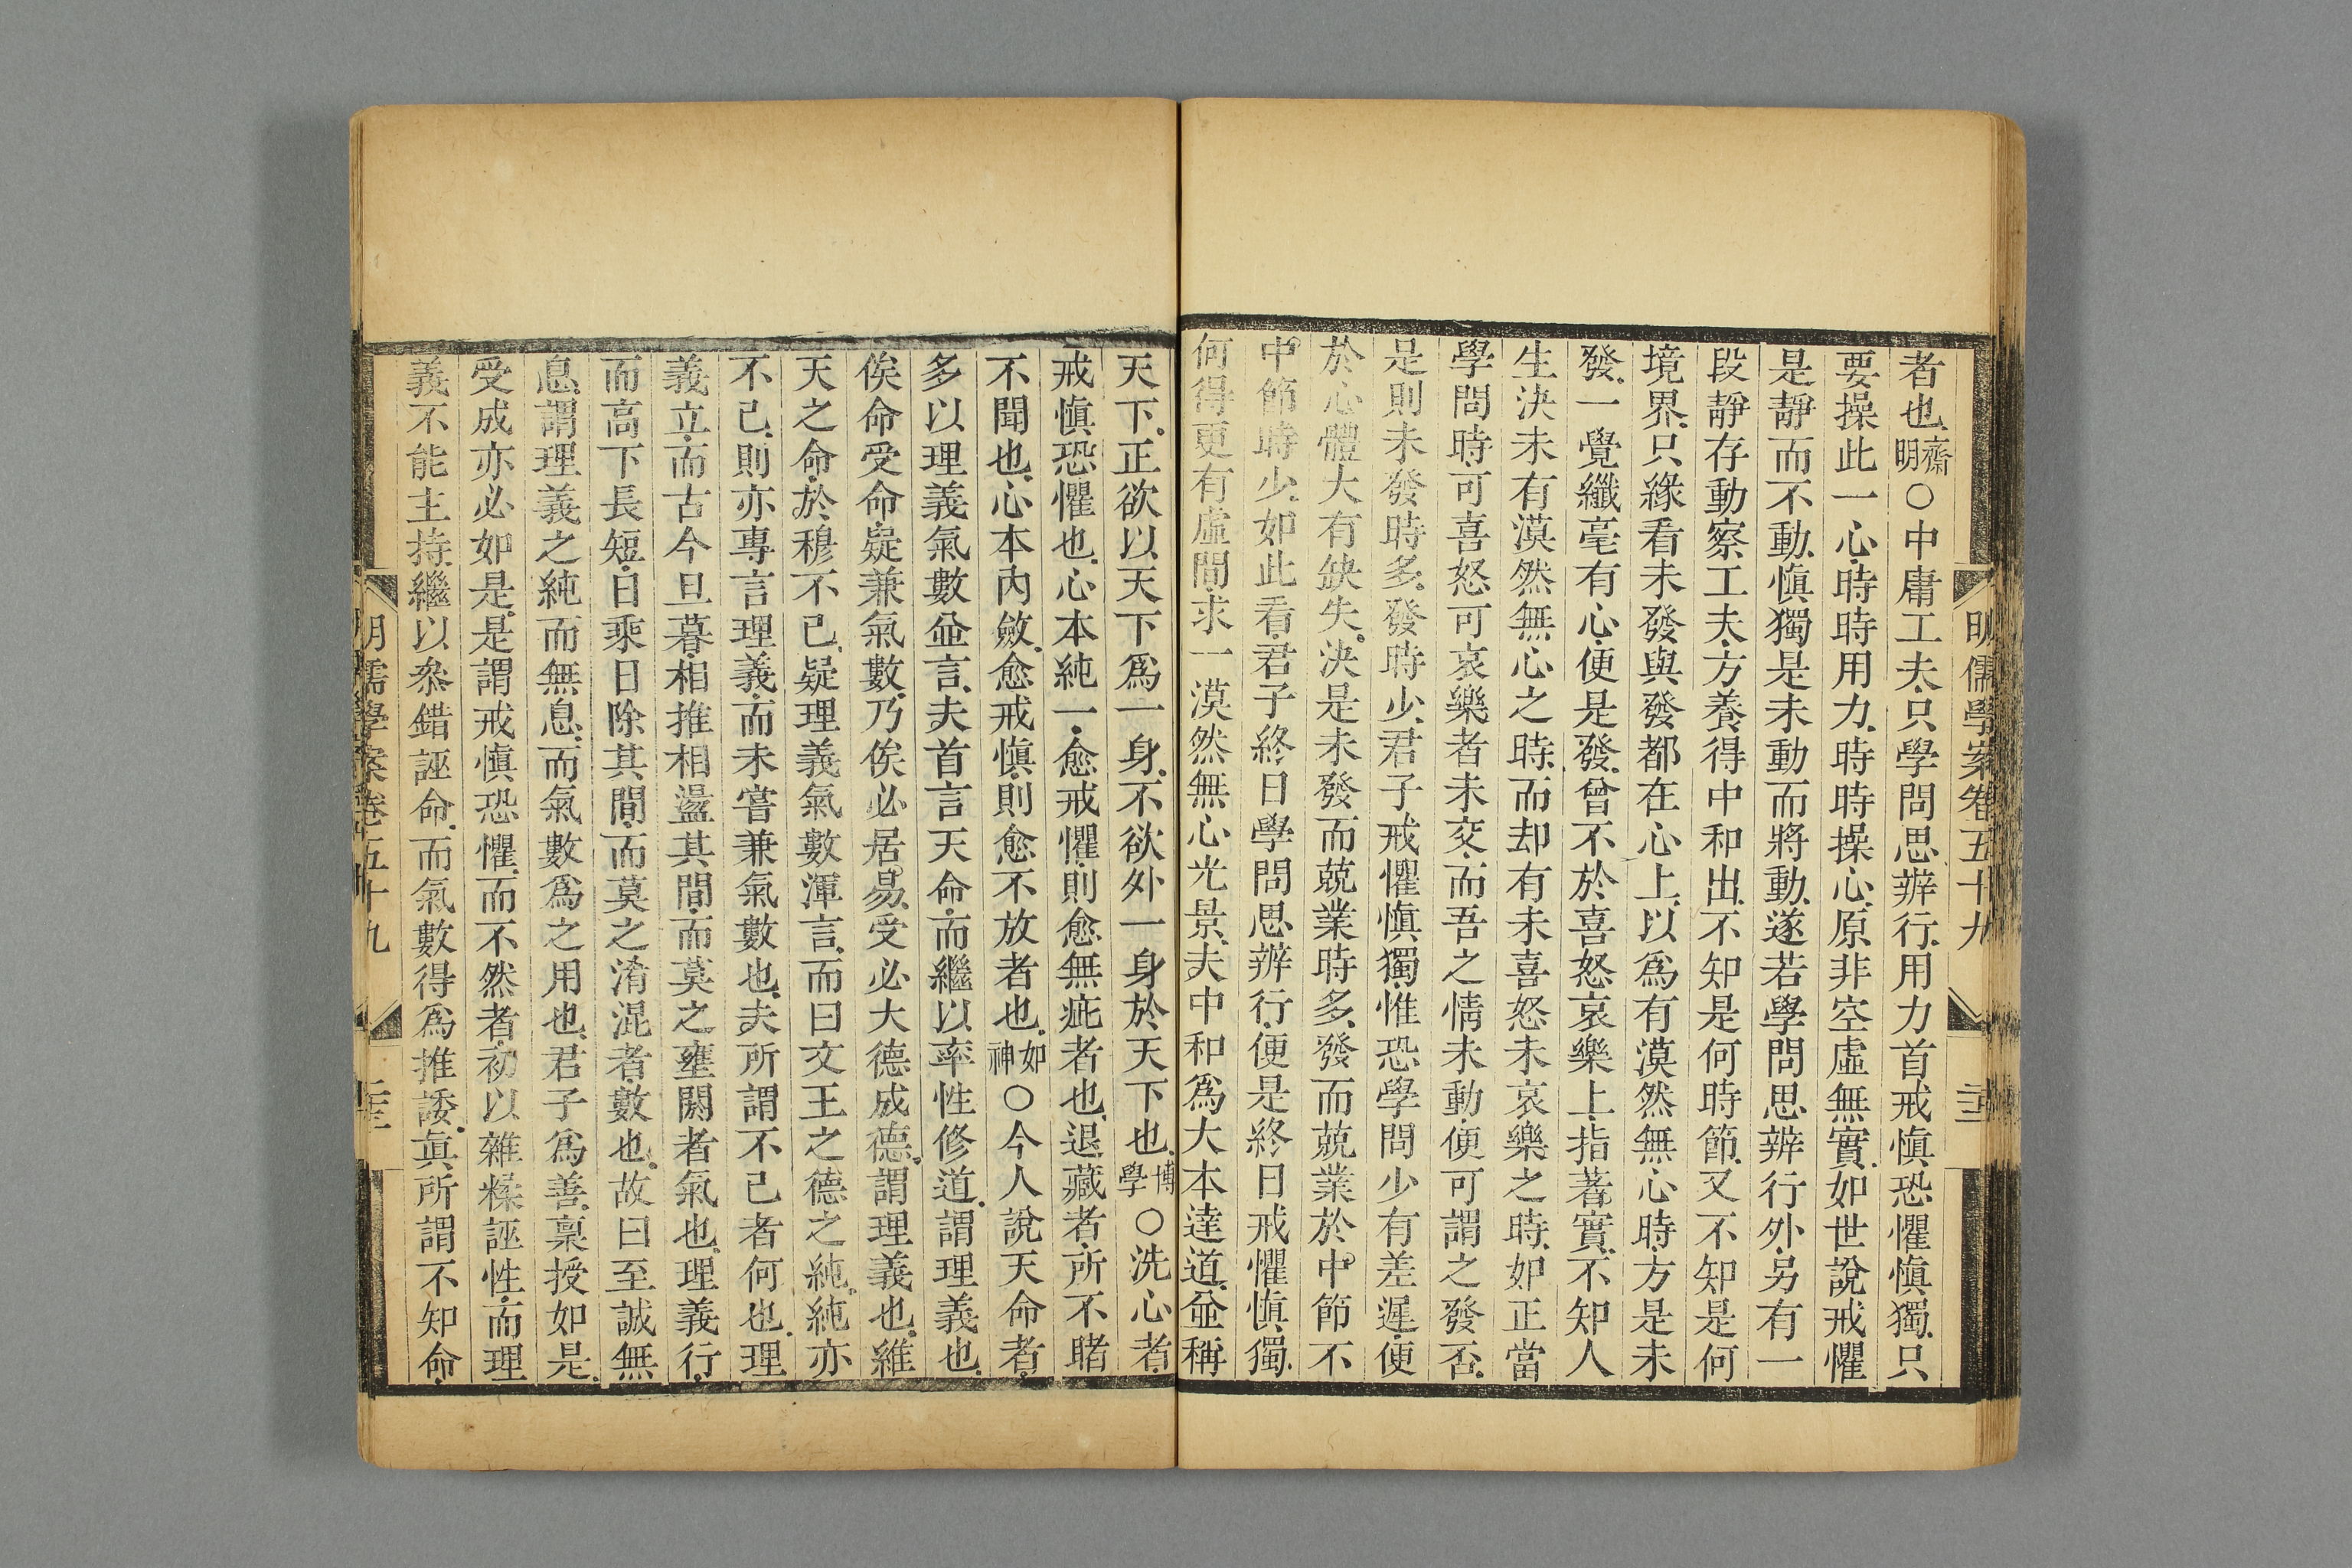 明儒學案卷五十九
者也齋明○中庸工夫只學問思辨行用力首戒愼恐懼愼獨只
要操此一心時時用力時時操心原非空虛無實如世說戒懼
是靜而不動愼獨是未動而將動遂若學問思辨行外另有一
段靜存動察工夫方養得中和出不知是何時節又不知是何
境界只緣看未發與發都在心上以爲有漠然無心時方是未
發一覺纖毫有心便是發曾不於喜怒哀樂上指著實不知人
生決未有漠然無心之時而却有未喜怒未哀樂之時如正當
學問時可喜怒可哀樂者未交而吾之情未動便可謂之發否
是則未發時多發時少君子戒懼愼獨惟恐學問少有差遲便
於心體大有缺失決是未發而兢業時多發而兢業於中節不
中節時少如此看君子終日學問思辨行便是終日戒懼愼獨
何得更有虛間求一漠然無心光景夫中和爲大本達道並稱
天下正欲以天下爲一身不欲外一身於天下也博學○洗心者
戒愼恐懼也心本純一愈戒懼則愈無疵者也退藏者所不睹
不聞也心本內斂愈戒愼則愈不放者也如神○今人說天命者
多以理義氣數並言夫首言天命而繼以率性修道謂理義也
俟命受命疑兼氣數乃俟必居易受必大德成德謂理義也維
天之命於穆不已疑理義氣數渾言而曰文王之德之純純亦
不已則亦專言理義而未嘗兼氣數也夫所謂不已者何也理
義立而古今旦暮相推相盪其間而莫之壅閼者氣也理義行
而高下長短日乘日除其間而莫之淆混者數也故曰至誠無
息謂理義之純而無息而氣數爲之用也君子爲善稟授如是
受成亦必如是是謂戒愼恐懼而不然者初以雜糅誣性而理
義不能主持繼以叅錯誣命而氣數得爲推諉眞所謂不知命
明儒學案卷五十九